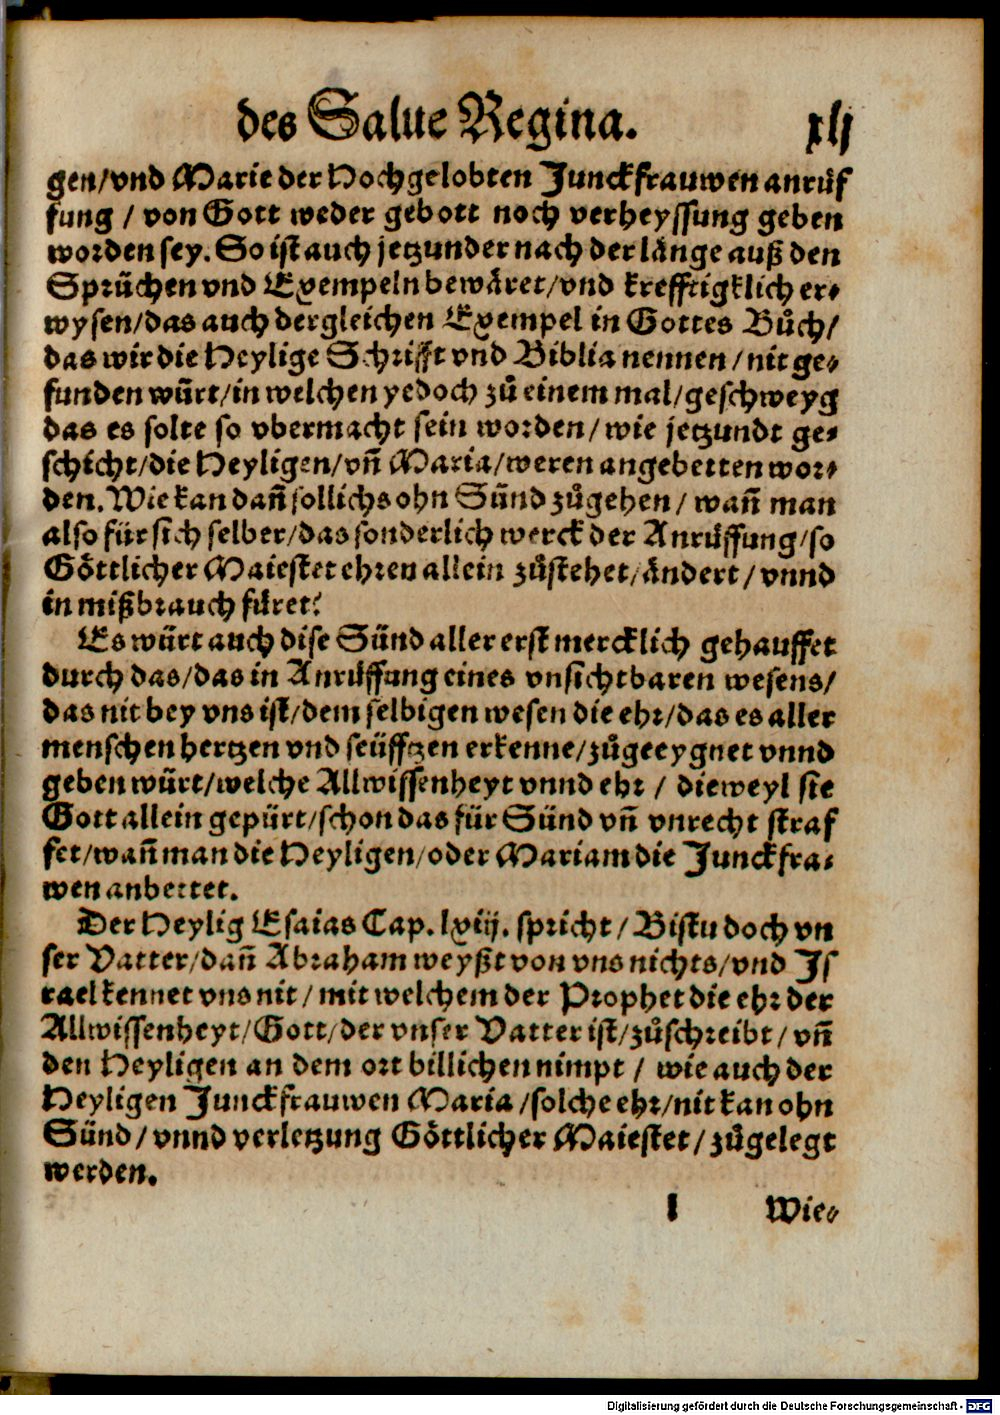 des Salue Regina. xlj
gen/vnd Marie der Hochgelobten Junckfrauwen anruͤf
fung / von Gott weder gebott noch verheyssung geben
worden sey. So ist auch jetzunder nach der laͤnge auß den
Spruͤchen vnd Exempeln bewaͤret/vnd krefftigklich er⸗
wysen/das auch dergleichen Exempel in Gottes Buͦch/
das wir die Heylige Schrifft vnd Biblia nennen/nit ge⸗
funden wuͤrt/in welchen yedoch zuͦ einem mal/geschweyg
das es solte so vbermacht sein worden/wie jetzundt ge⸗
schicht/die Heyligen/vñ Maria/weren angebetten wor⸗
den. Wie kan dañ sollichs ohn Suͤnd zuͦgehen/ wañ man
also für sich selber/das sonderlich werck der Anruͤffung/so
Goͤttlicher Maiestet ehren allein zuͦstehet/aͤndert/vnnd
in mißbrauch fuͤret?
Es wuͤrt auch dise Suͤnd aller erst mercklich gehauffet
durch das/das in Anruͤffung eines vnsichtbaren wesens/
das nit bey vns ist/dem selbigen wesen die ehr/das es aller
menschen hertzen vnd seüfftzen erkenne/zuͦgeeygnet vnnd
geben wuͤrt/welche Allwissenheyt vnnd ehr / dieweyl sie
Gott allein gepürt/schon das für Suͤnd vñ vnrecht straf
fet/wañ man die Heyligen/oder Mariam die Junckfra⸗
wen anbettet.
Der Heylig Esaias Cap. lxiij. spricht/Bistu doch vn
ser Vatter/dañ Abraham weyßt von vns nichts/vnd Js
rael kennet vns nit/mit welchem der Prophet die ehr der
Allwissenheyt/Gott/der vnser Vatter ist/zuͦschreibt/vñ
den Heyligen an dem ort billichen nimpt / wie auch der
Heyligen Junckfrauwen Maria/solche ehr/nit kan ohn
Suͤnd/vnnd verletzung Goͤttlicher Maiestet/zuͦgelegt
werden.
l Wie⸗
Digitalisierung gefördert durch die Deutsche Forschungsgemeinschaft - DFG